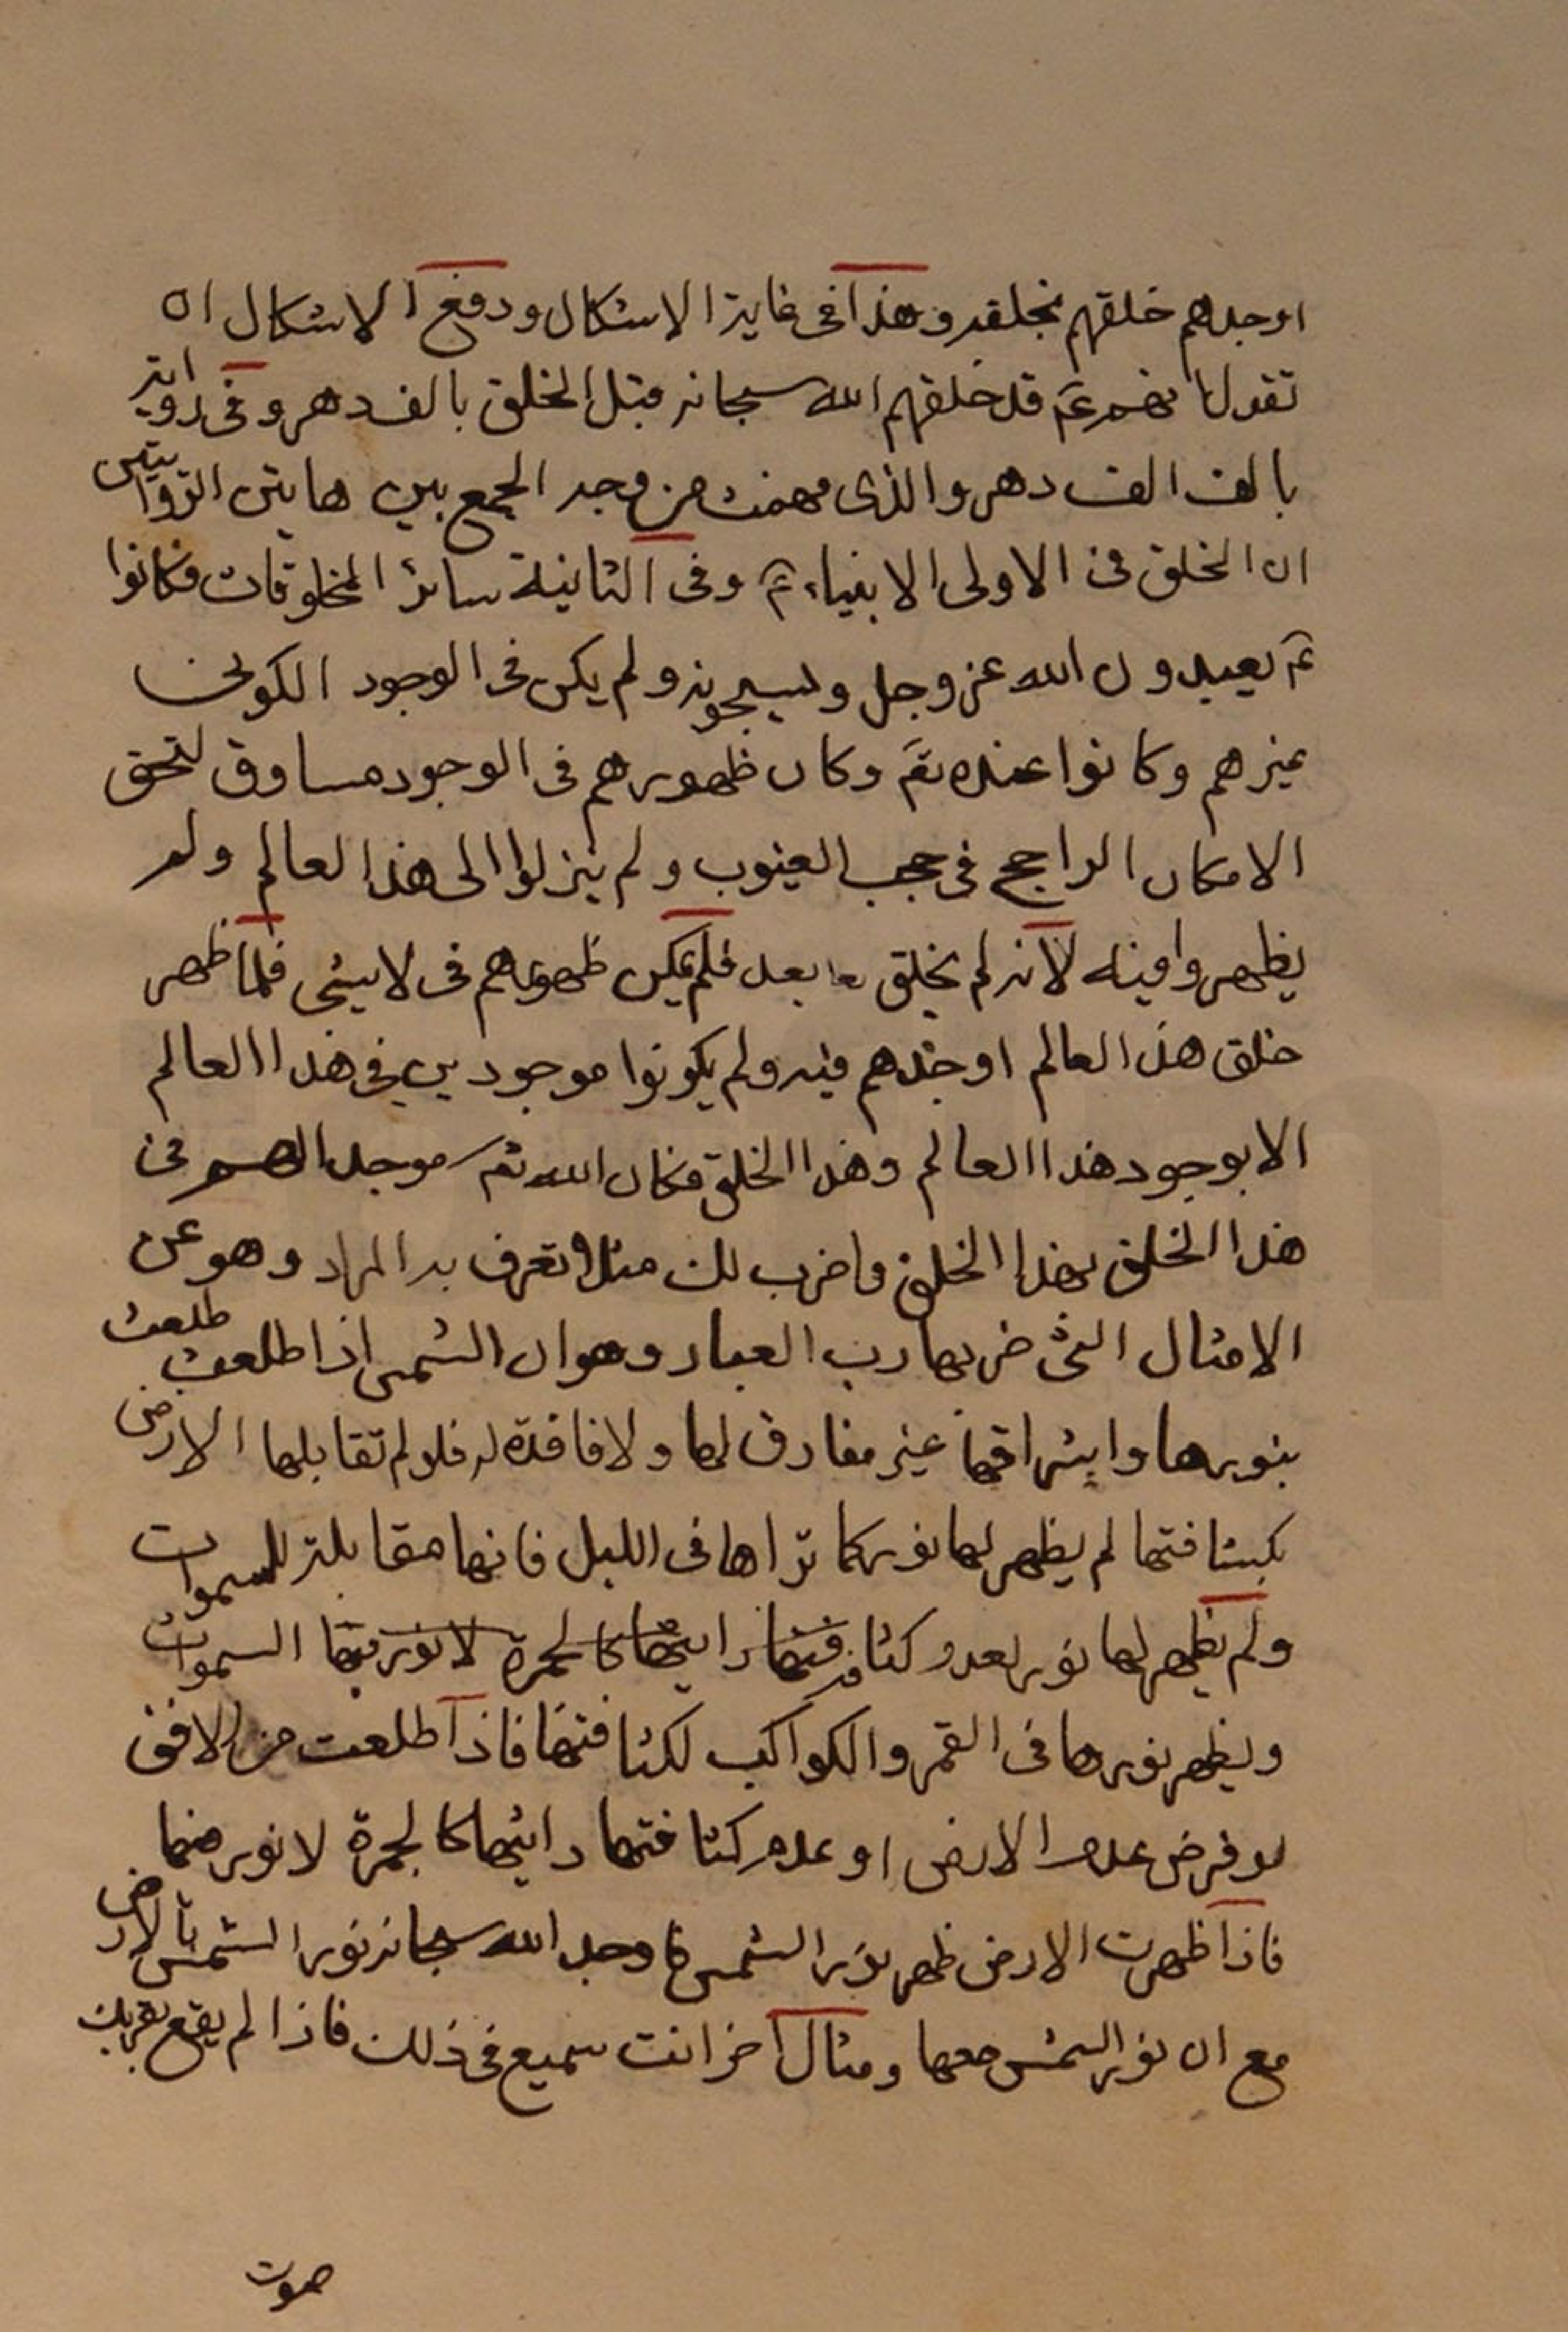 اوجدهم خلقهم بخلقه وهذا فى غاية الاشكال ودفع الاشكال ان
تقول انهم عم قد خلقهم الله سبحانه قبل الخلق بالف دهر وفى رواية
بالف الف دهر والذى فهمت من وجه الجمع بين هاتين الروايتين
ان الخلق فى الاولى الانبياء عم وفى الثانية سائر المخلوقات فكانوا
عم يعبدون الله عز وجل ويسبحونه ولم يكن فى الوجود الكونى
غيرهم وكانوا عنده تع وكان ظهورهم فى الوجود مساوق لتحقق
الامكان الراجح فى حجب الغيوب ولم ينزلوا الى هذا العالم ولم
يظهروا فيه لانه لم يخلق بعد فلم يكن ظهورهم فى لا شىء فلما ظهر
خلق هذا العالم اوجدهم فيه ولم يكونوا موجودين فى هذا العالم
الا بوجود هذا العالم وهذا الخلق فكان الله تع موجدا لهم فى
هذا الخلق بهذا الخلق واضرب لك مثلا تعرف به المراد وهو عن
الامثال التى ضربها رب العباد وهو ان الشمس اذا طلعت طلعت
بنورها واشراقها غير مفارق لها ولا فاقدة له فلو لم تقابلها الارض
بكثافتها لم يظهر لها نور كما تراها فى الليل فانها مقابلة للسموات
ولم يظهر لها نور لعدم كثافة فتها رايتها كالجمرة لا نور فيها السموات
ويظهر نورها فى القمر والكواكب لكثافتها فاذا طلعت من الافق
لو فرض عدم الارض او عدم كثافتها رايتها كالجمرة لا نور منها
فاذا ظهرت الارض ظهر نور الشمس فاوجد الله سبحانه نور الشمس بالارض
مع ان نور الشمس معها ومثال اخر انت سميع فى ذلك فاذا لم يقع بقربك
صوت